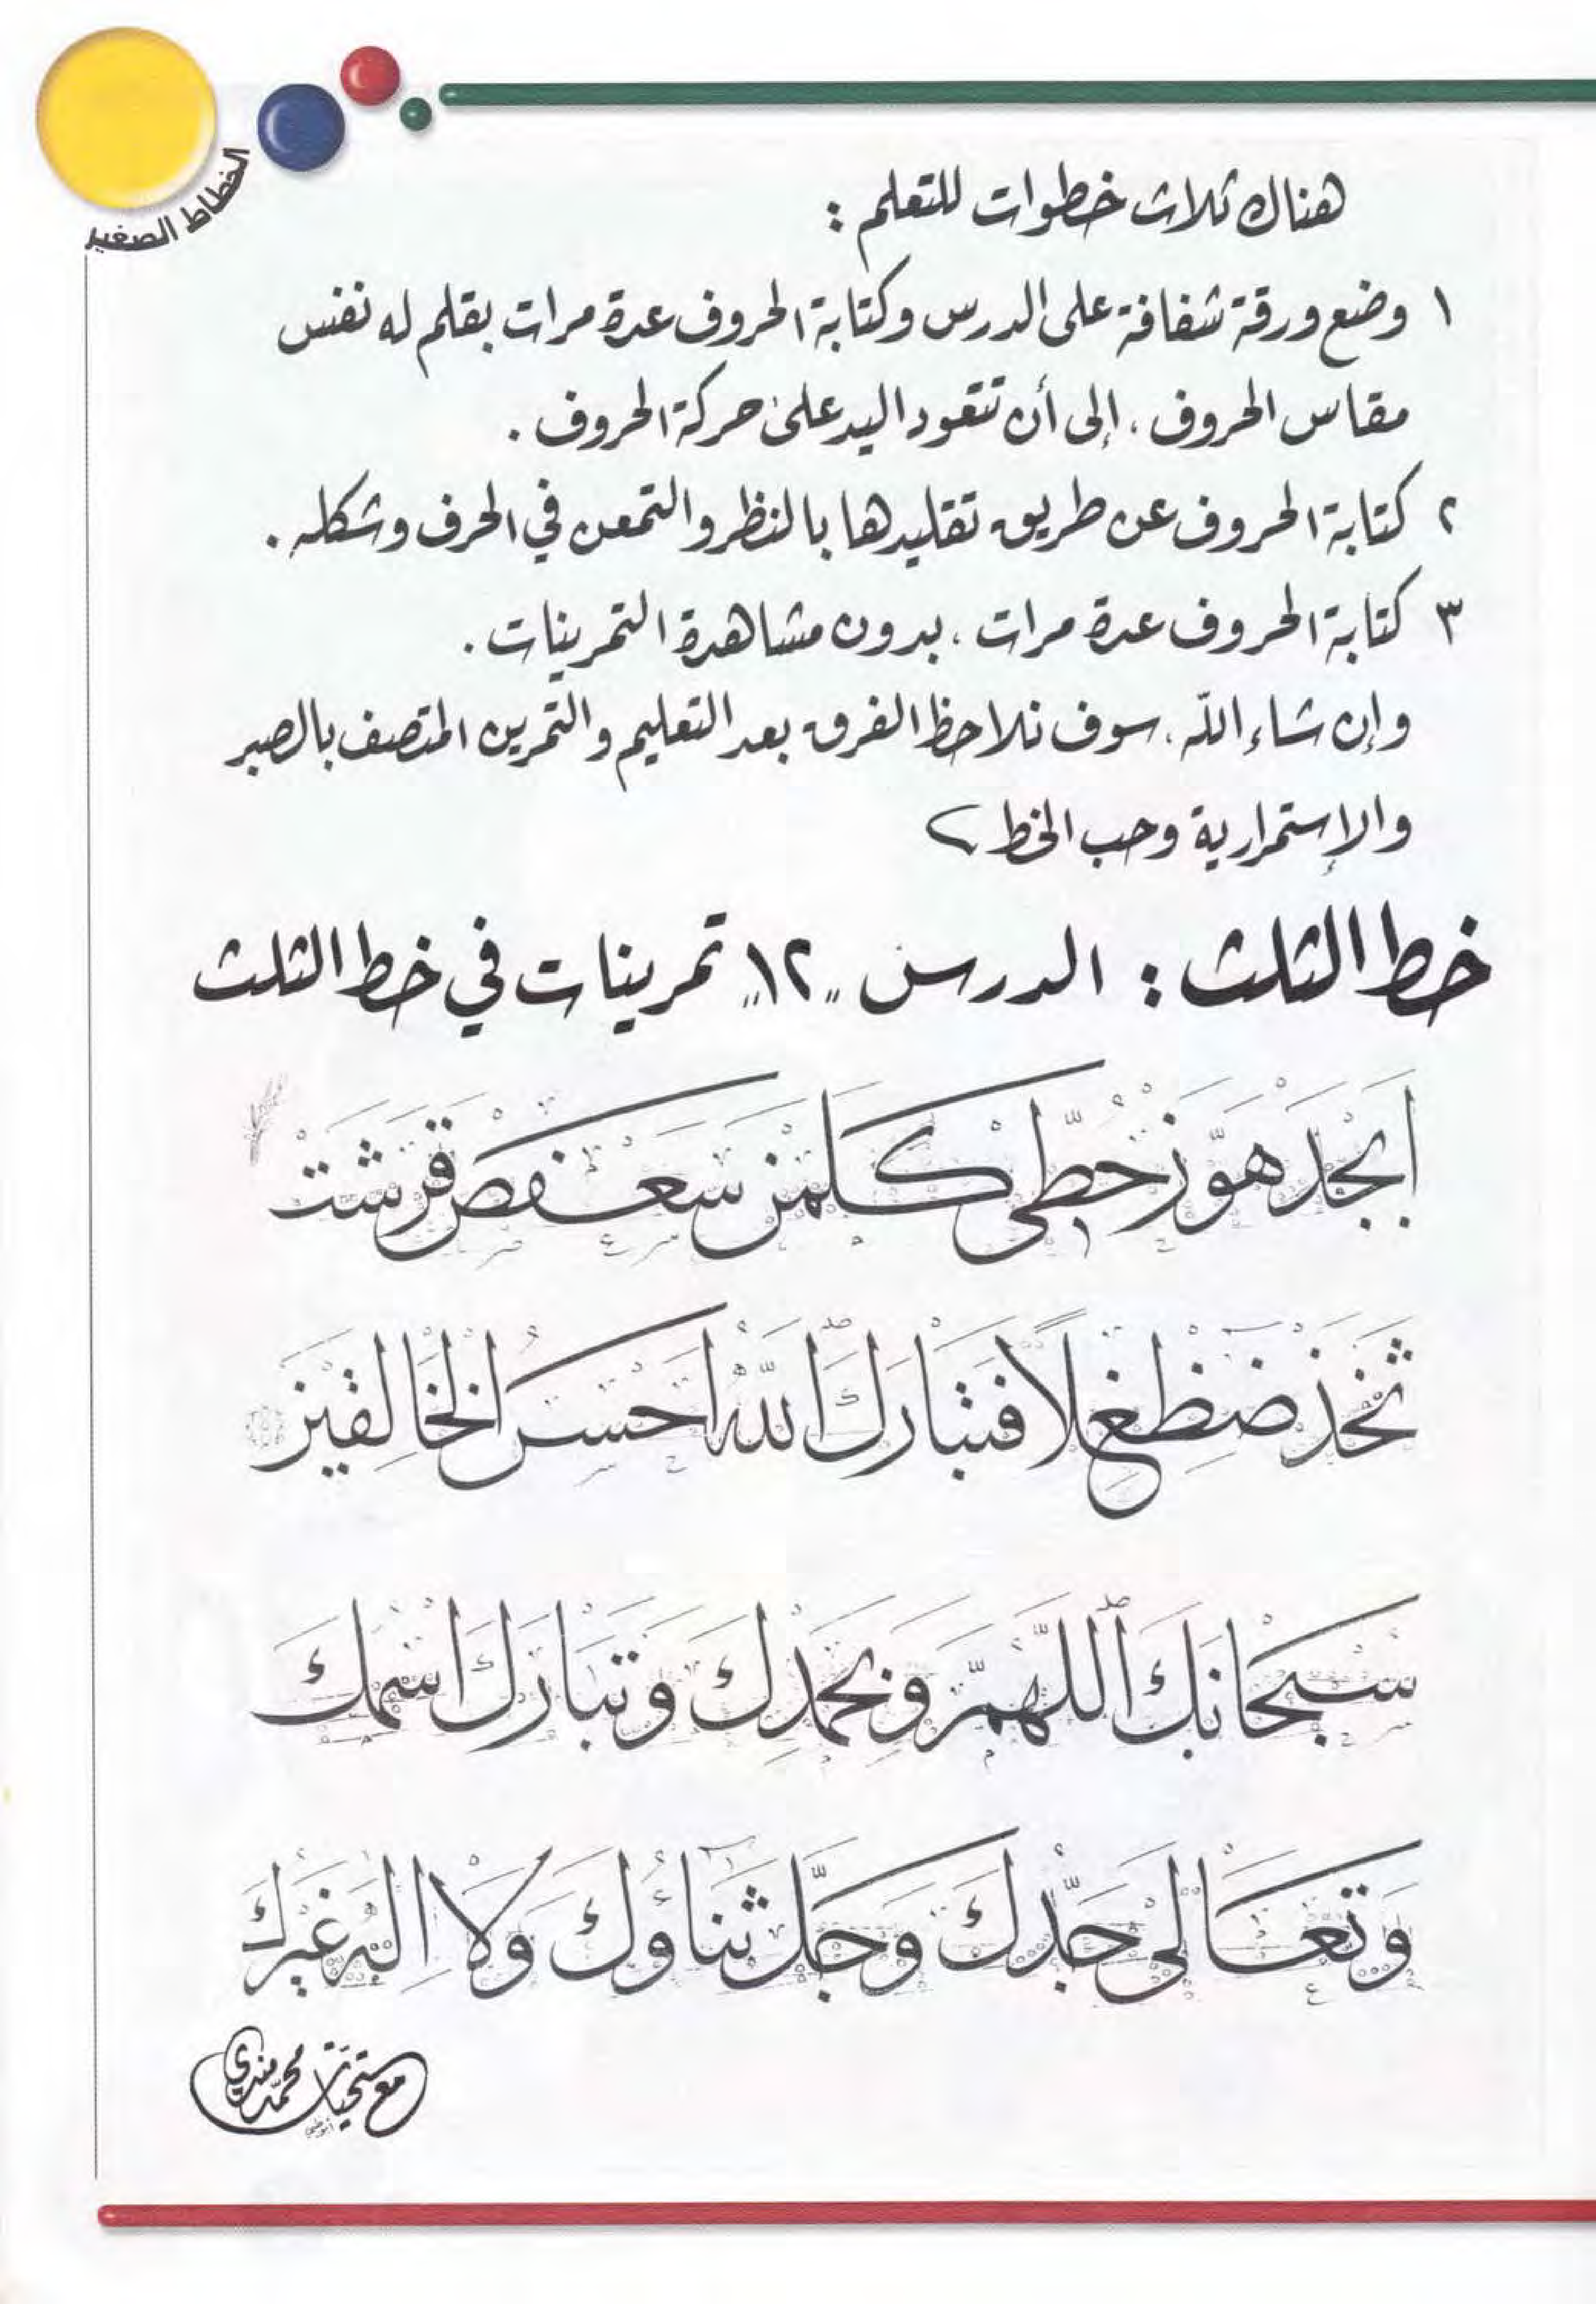 الخطاط الصغير
هناك ثلاث خطوات للتعلم :
١ وضع ورقة شفافة على الدرس وكتابة الحروف عدة مرات بقلم له نفس
مقاس الحروف ، إلى أن تتعود اليد على حركة الحروف .
٢ كتابة الحروف عن طريق تقليدها بالنظر والتمعن في الحرف وشكله .
٣ كتابة الحروف عدة مرات ، بدون مشاهدة التمرينات .
وإن شاء الله ، سوف نلاحظ الفرق بعد التعليم والتمرين المتصف بالصبر
والإستمرارية وحب الخط
خط الثلث : الدرس "١٢" تمرينات في خط الثلث
اَبْجَدْ هَوَّزْ حُطِّي كَلَمَنْ سَعَفَصْ قَرَشَتْ
ثَخَذْ ضَظِغٍ لًا فَتَبَارَكَ اللهُ اَحْسَنُ الْخَالِقِينَ
سُبْحَانَكَ ٱللَّهُمَّ وَبِحَمْدِكَ وَتَبَارَكَ اسْمُكَ
وَتَعَالَى جَدُّكَ وَجَلَّ ثَنَاؤُكَ وَلَا اِلَهَ غَيْرُكَ
مع تحيات محمد مندي
أبوظبي